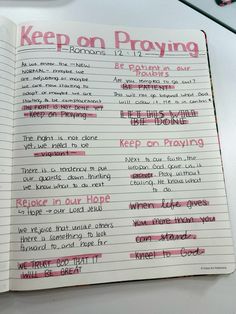 Keep on Praying
Romans 12:12
As we enter the "New
Normal" maybe we
are adjusting or maybe
we are now starting to
adapt or maybe we are
starting to be complacent
The fight is not done yet
Keep on Praying
The fight is not done
yet, we need to be
vigilant
There is a tendency to put
our guards down thinking
we know what to do next
Rejoice in our Hope
↳ Hope → our Lord Jesus
We rejoice that unlike others
there is something to look
forward to, and hope for
WE TRUST GOD THAT IT
WILL BE GREAT
Be Patient in our
Troubles
Are you tempted to go out?
BE PATIENT!
This will not go beyond what God
will allow it. He is in control
LET HIS WILL
BE DONE
Keep on Praying
Next to our faith, the
weapon God gave us is
prayer. Pray without
ceasing. He knows what
to do.
When life gives
you more than you
can stand,
kneel to God